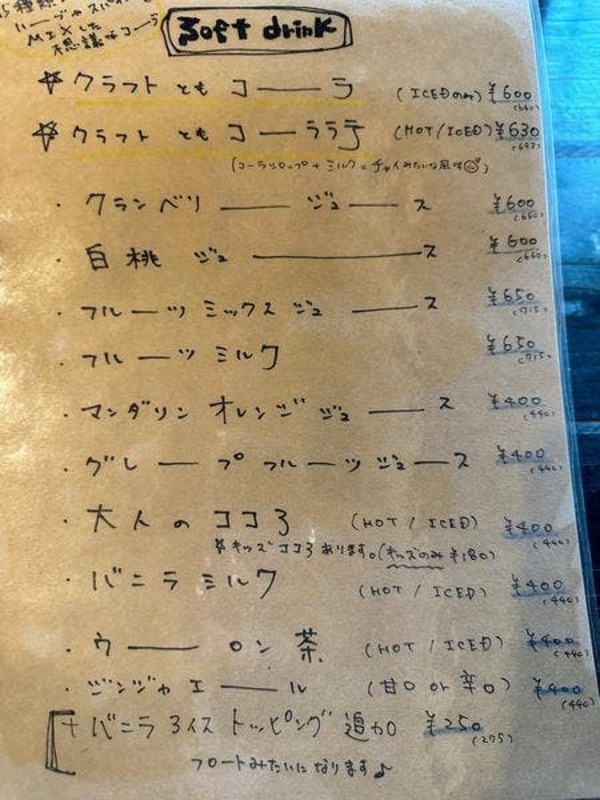 15種類
ハーブやスパイスを
MIXした
不思議なコーラ
Soft drink
☆ クラフト とも コーラ (ICED のみ) ¥600 (660)
☆ クラフト とも コーララテ (HOT/ICED) ¥630 (693)
(コーラシロップ + ミルク = チャイみたいな風味☺)
・クランベリージュース ¥600 (660)
・白桃ジュース ¥600 (660)
・フルーツミックスジュース ¥650 (715)
・フルーツミルク ¥650 (715)
・マンダリンオレンジジュース ¥400 (440)
・グレープフルーツジュース ¥400 (440)
・大人のココろ (HOT / ICED) ¥400 (440)
※キッズココろあります。(キッズのみ ¥180)
・バニラミルク (HOT / ICED) ¥400 (440)
・ウーロン茶 (HOT / ICED) ¥400 (440)
・ジンジャエール (甘口 or 辛口) ¥400 (440)
+ バニラ ろイス トッピング 追加 ¥250 (275)
フロートみたいになります♪